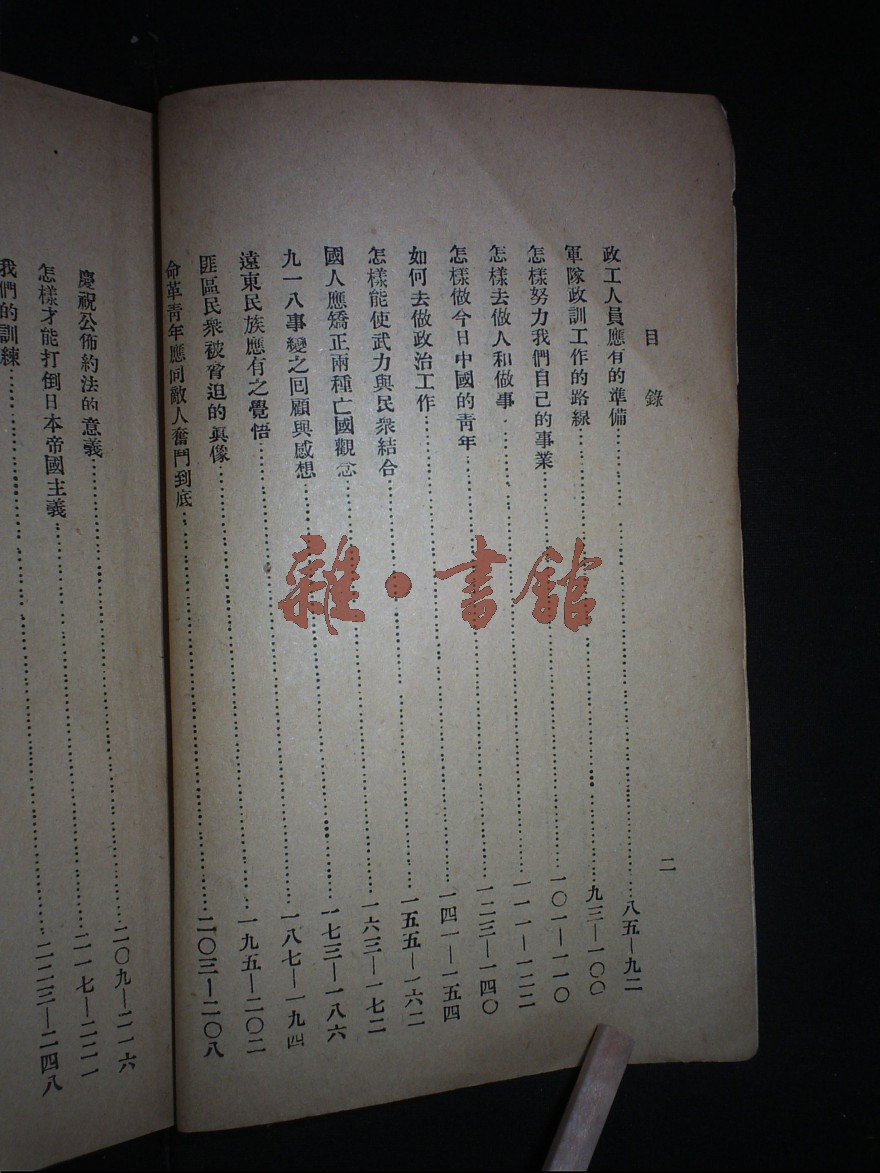 目錄
二
政工人員應有的準備……八五—九二
軍隊政訓工作的路線……九三—一〇〇
怎樣努力我們自己的事業……一〇一—一一〇
怎樣去做人和做事……一一一—一二二
怎樣做今日中國的青年……一二三—一四〇
如何去做政治工作……一四一—一五四
怎樣能使武力與民衆結合……一五五—一六二
國人應矯正兩種亡國觀念……一六三—一七二
九一八事變之回顧與感想……一七三—一八六
遠東民族應有之覺悟……一八七—一九四
匪區民衆被脅迫的眞像……一九五—二〇二
命革青年應向敵人奮鬥到底……二〇三—二〇八
慶祝公佈約法的意義……二〇九—二一六
怎樣才能打倒日本帝國主義……二一七—二二二
我們的訓練……二二三—二四八
雜·書館